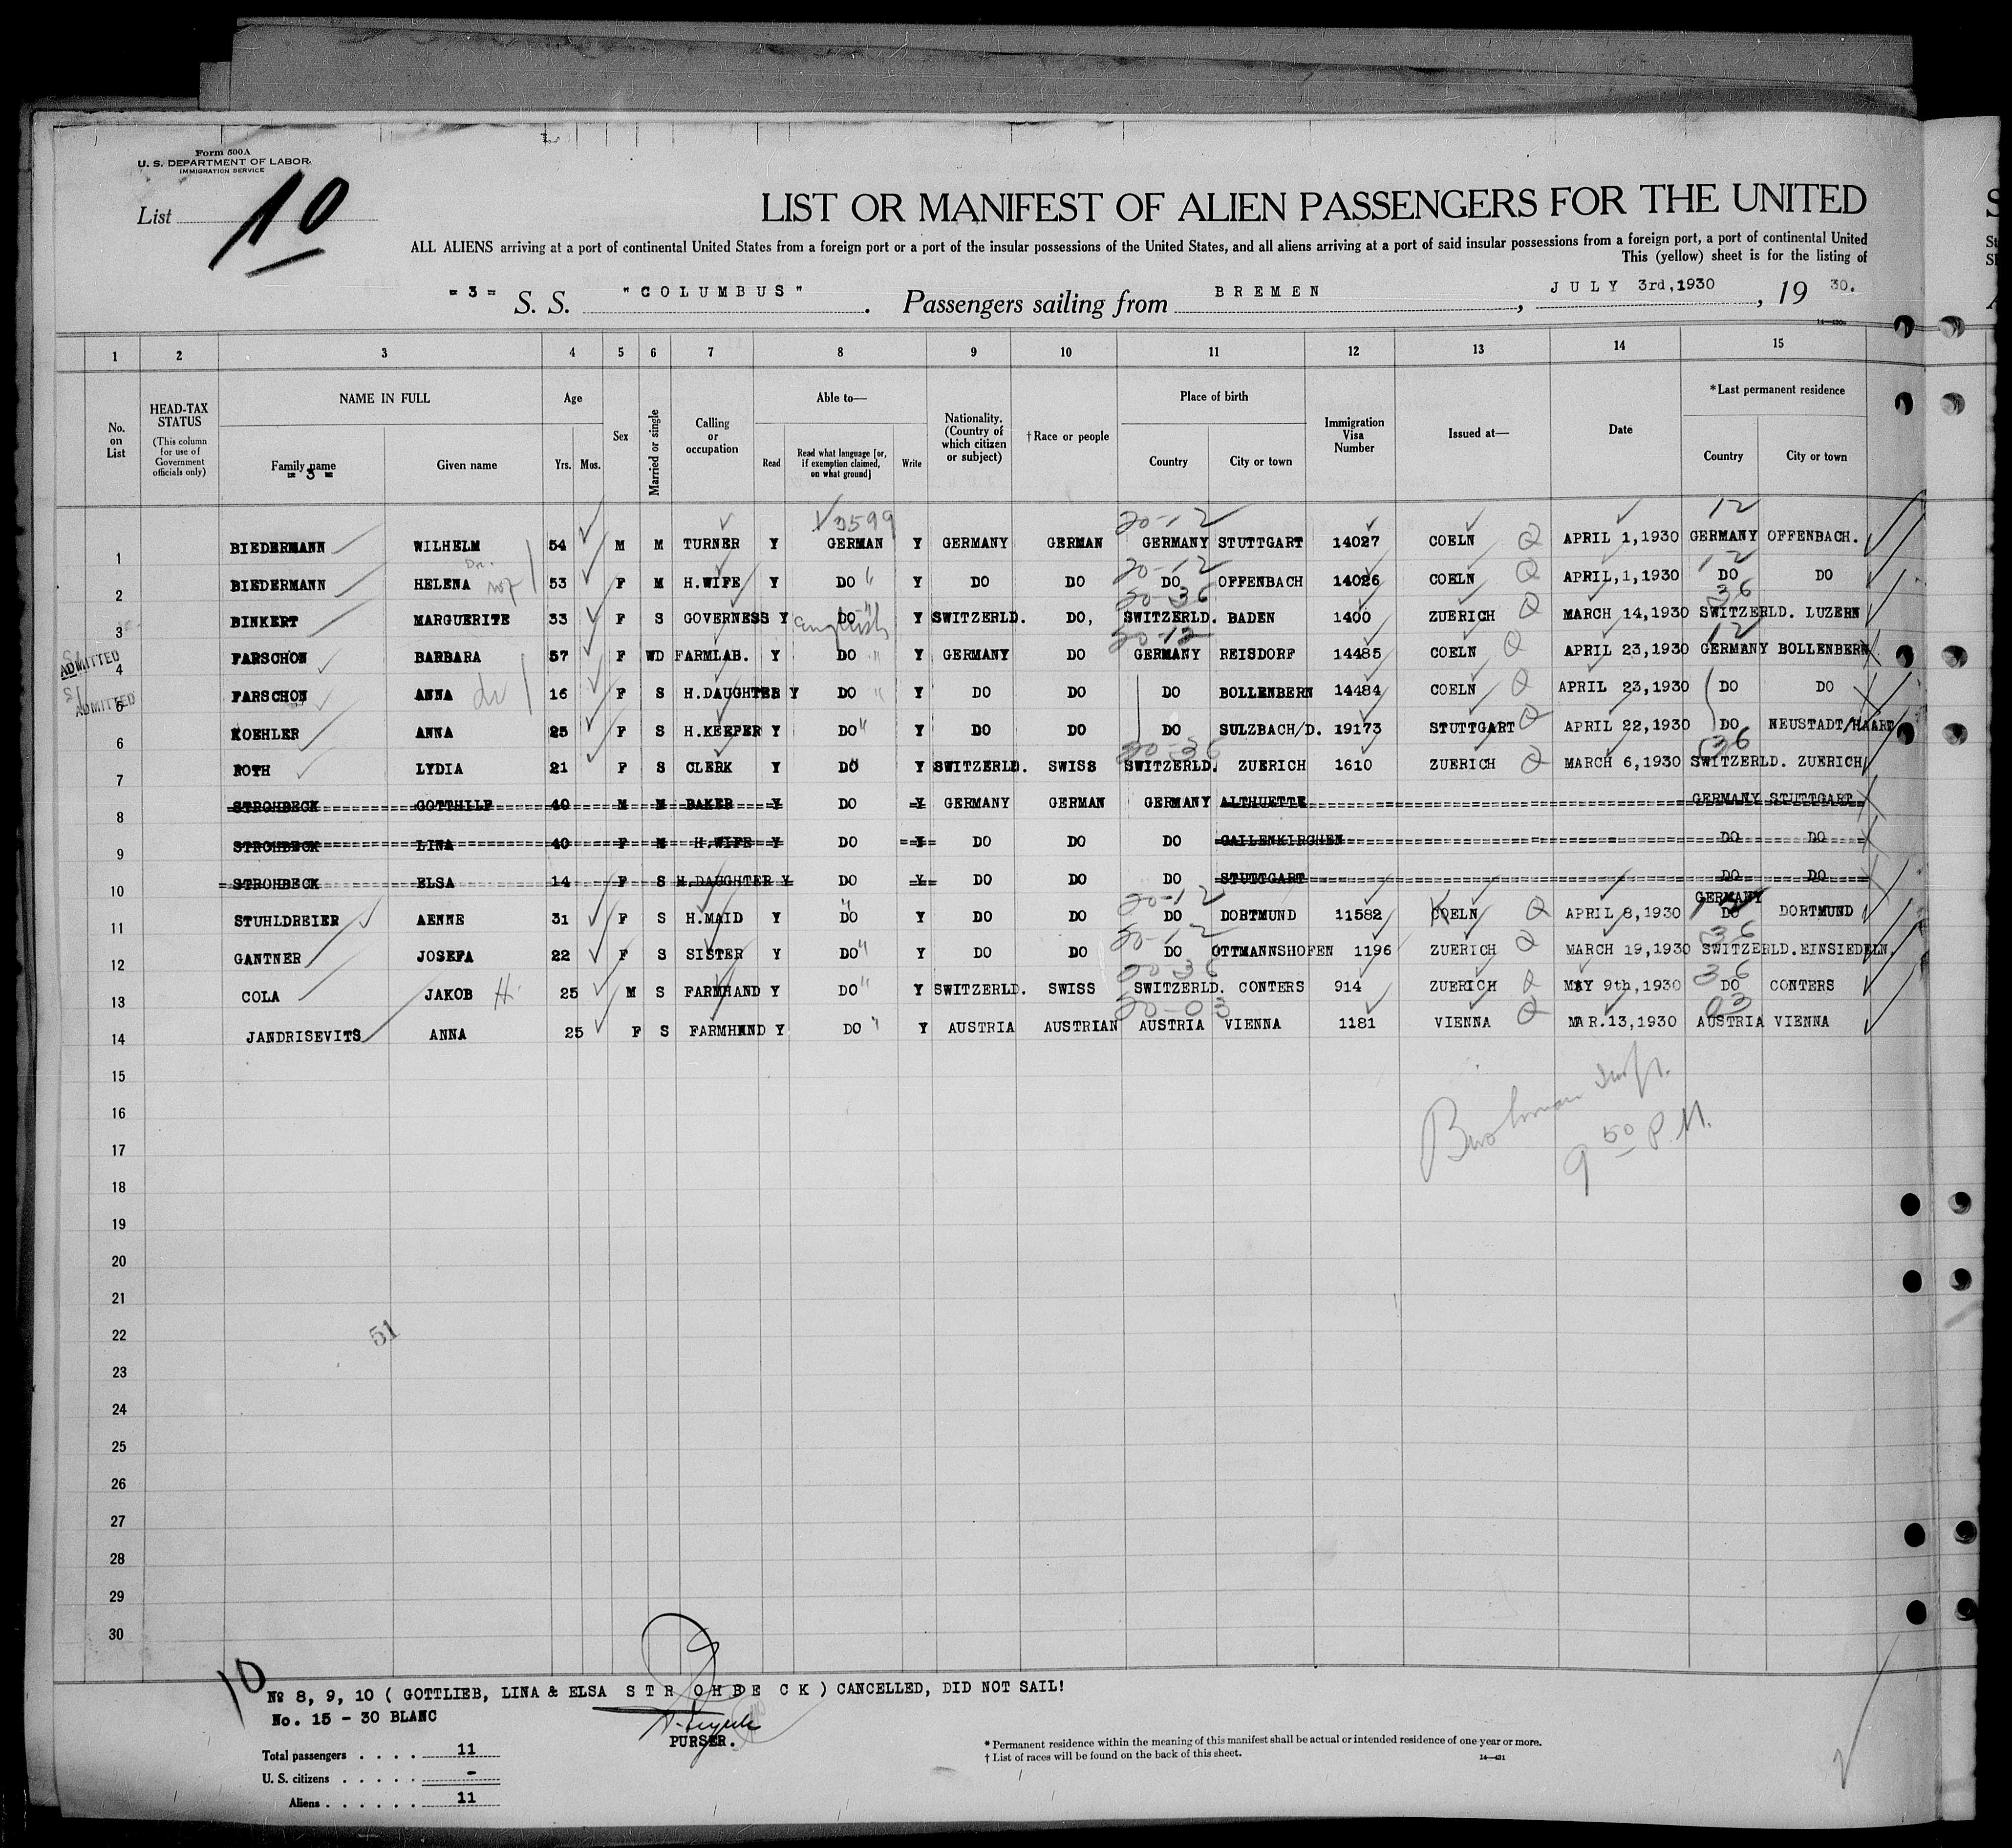 Form 500 A
U. S. DEPARTMENT OF LABOR
IMMIGRATION SERVICE
List 10
LIST OR MANIFEST OF ALIEN PASSENGERS FOR THE UNITED
ALL ALIENS arriving at a port of continental United States from a foreign port or a port of the insular possessions of the United States, and all aliens arriving at a port of said insular possessions from a foreign port, a port of continental United
This (yellow) sheet is for the listing of
= 3 = S. S. "COLUMBUS". Passengers sailing from BREMEN, JULY 3rd, 1930, 19 30.
1 2 3 4 5 6 7 8 9 10 11 12 13 14 15
No. on List
HEAD-TAX STATUS (This column for use of Government officials only)
NAME IN FULL Family name Given name
= 3 =
Age Yrs. Mos.
Sex
Married or single
Calling or occupation
Able to— Read Read what language [or, if exemption claimed, on what ground] Write
Nationality. (Country of which citizen or subject)
† Race or people
Place of birth Country City or town
Immigration Visa Number
Issued at—
Date
*Last permanent residence Country City or town
V3599 20-12 12
1 BIEDERMANN WILHELM 54 M M TURNER Y GERMAN Y GERMANY GERMAN GERMANY STUTTGART 14027 COELN APRIL 1,1930 GERMANY OFFENBACH.
20-12 12
2 BIEDERMANN HELENA 53 F M H.WIFE Y DO " Y DO DO DO OFFENBACH 14026 COELN APRIL,1,1930 DO DO
20-36 36
3 BINKERT MARGUERITE 33 F S GOVERNESS Y DO " english Y SWITZERLD. DO, SWITZERLD. BADEN 1400 ZUERICH MARCH 14,1930 SWITZERLD. LUZERN
20-12 12
ADMITTED 4 FARSCHON BARBARA 57 F WD FARMLAB. Y DO " Y GERMANY DO GERMANY REISDORF 14485 COELN APRIL 23,1930 GERMANY BOLLENBERN
ADMITTED 5 FARSCHON ANNA 16 F S H.DAUGHTER Y DO " Y DO DO DO BOLLENBERN 14484 COELN APRIL 23,1930 DO DO
6 KOEHLER ANNA 25 F S H.KEEPER Y DO " Y DO DO DO SULZBACH/D. 19173 STUTTGART APRIL 22,1930 DO NEUSTADT/HAART
20-36 36
7 ROTH LYDIA 21 F S CLERK Y DO " Y SWITZERLD. SWISS SWITZERLD. ZUERICH 1610 ZUERICH MARCH 6,1930 SWITZERLD. ZUERICH
8 STROHBECK GOTTHILF 40 M M BAKER Y DO Y GERMANY GERMAN GERMANY ALTHUETTE GERMANY STUTTGART
9 STROHBECK LINA 40 F M H.WIFE Y DO Y DO DO DO GAILENKIRCHEN DO DO
10 STROHBECK ELSA 14 F S H.DAUGHTER Y DO Y DO DO DO STUTTGART DO DO
20-12 GERMANY 12
11 STUHLDREIER AENNE 31 F S H.MAID Y DO " Y DO DO DO DORTMUND 11582 COELN APRIL 8,1930 DO DORTMUND
20-12 36
12 GANTNER JOSEFA 22 F S SISTER Y DO " Y DO DO DO OTTMANNSHOFEN 1196 ZUERICH MARCH 19,1930 SWITZERLD. EINSIEDELN.
20-36 36
13 COLA JAKOB H 25 M S FARMHAND Y DO " Y SWITZERLD. SWISS SWITZERLD. CONTERS 914 ZUERICH MAY 9th,1930 DO CONTERS
20-03 03
14 JANDRISEVITS ANNA 25 F S FARMHAND Y DO " Y AUSTRIA AUSTRIAN AUSTRIA VIENNA 1181 VIENNA MAR.13,1930 AUSTRIA VIENNA
15
16
9 50 P.M.
17
18
19
20
21
22
51
23
24
25
26
27
28
29
30
10
No 8, 9, 10 ( GOTTLIEB, LINA & ELSA STROHBECK ) CANCELLED, DID NOT SAIL!
No. 15 - 30 BLANC
PURSER.
Total passengers . . . . 11
U. S. citizens . . . . . -
Aliens . . . . . . 11
* Permanent residence within the meaning of this manifest shall be actual or intended residence of one year or more.
† List of races will be found on the back of this sheet.
14—431